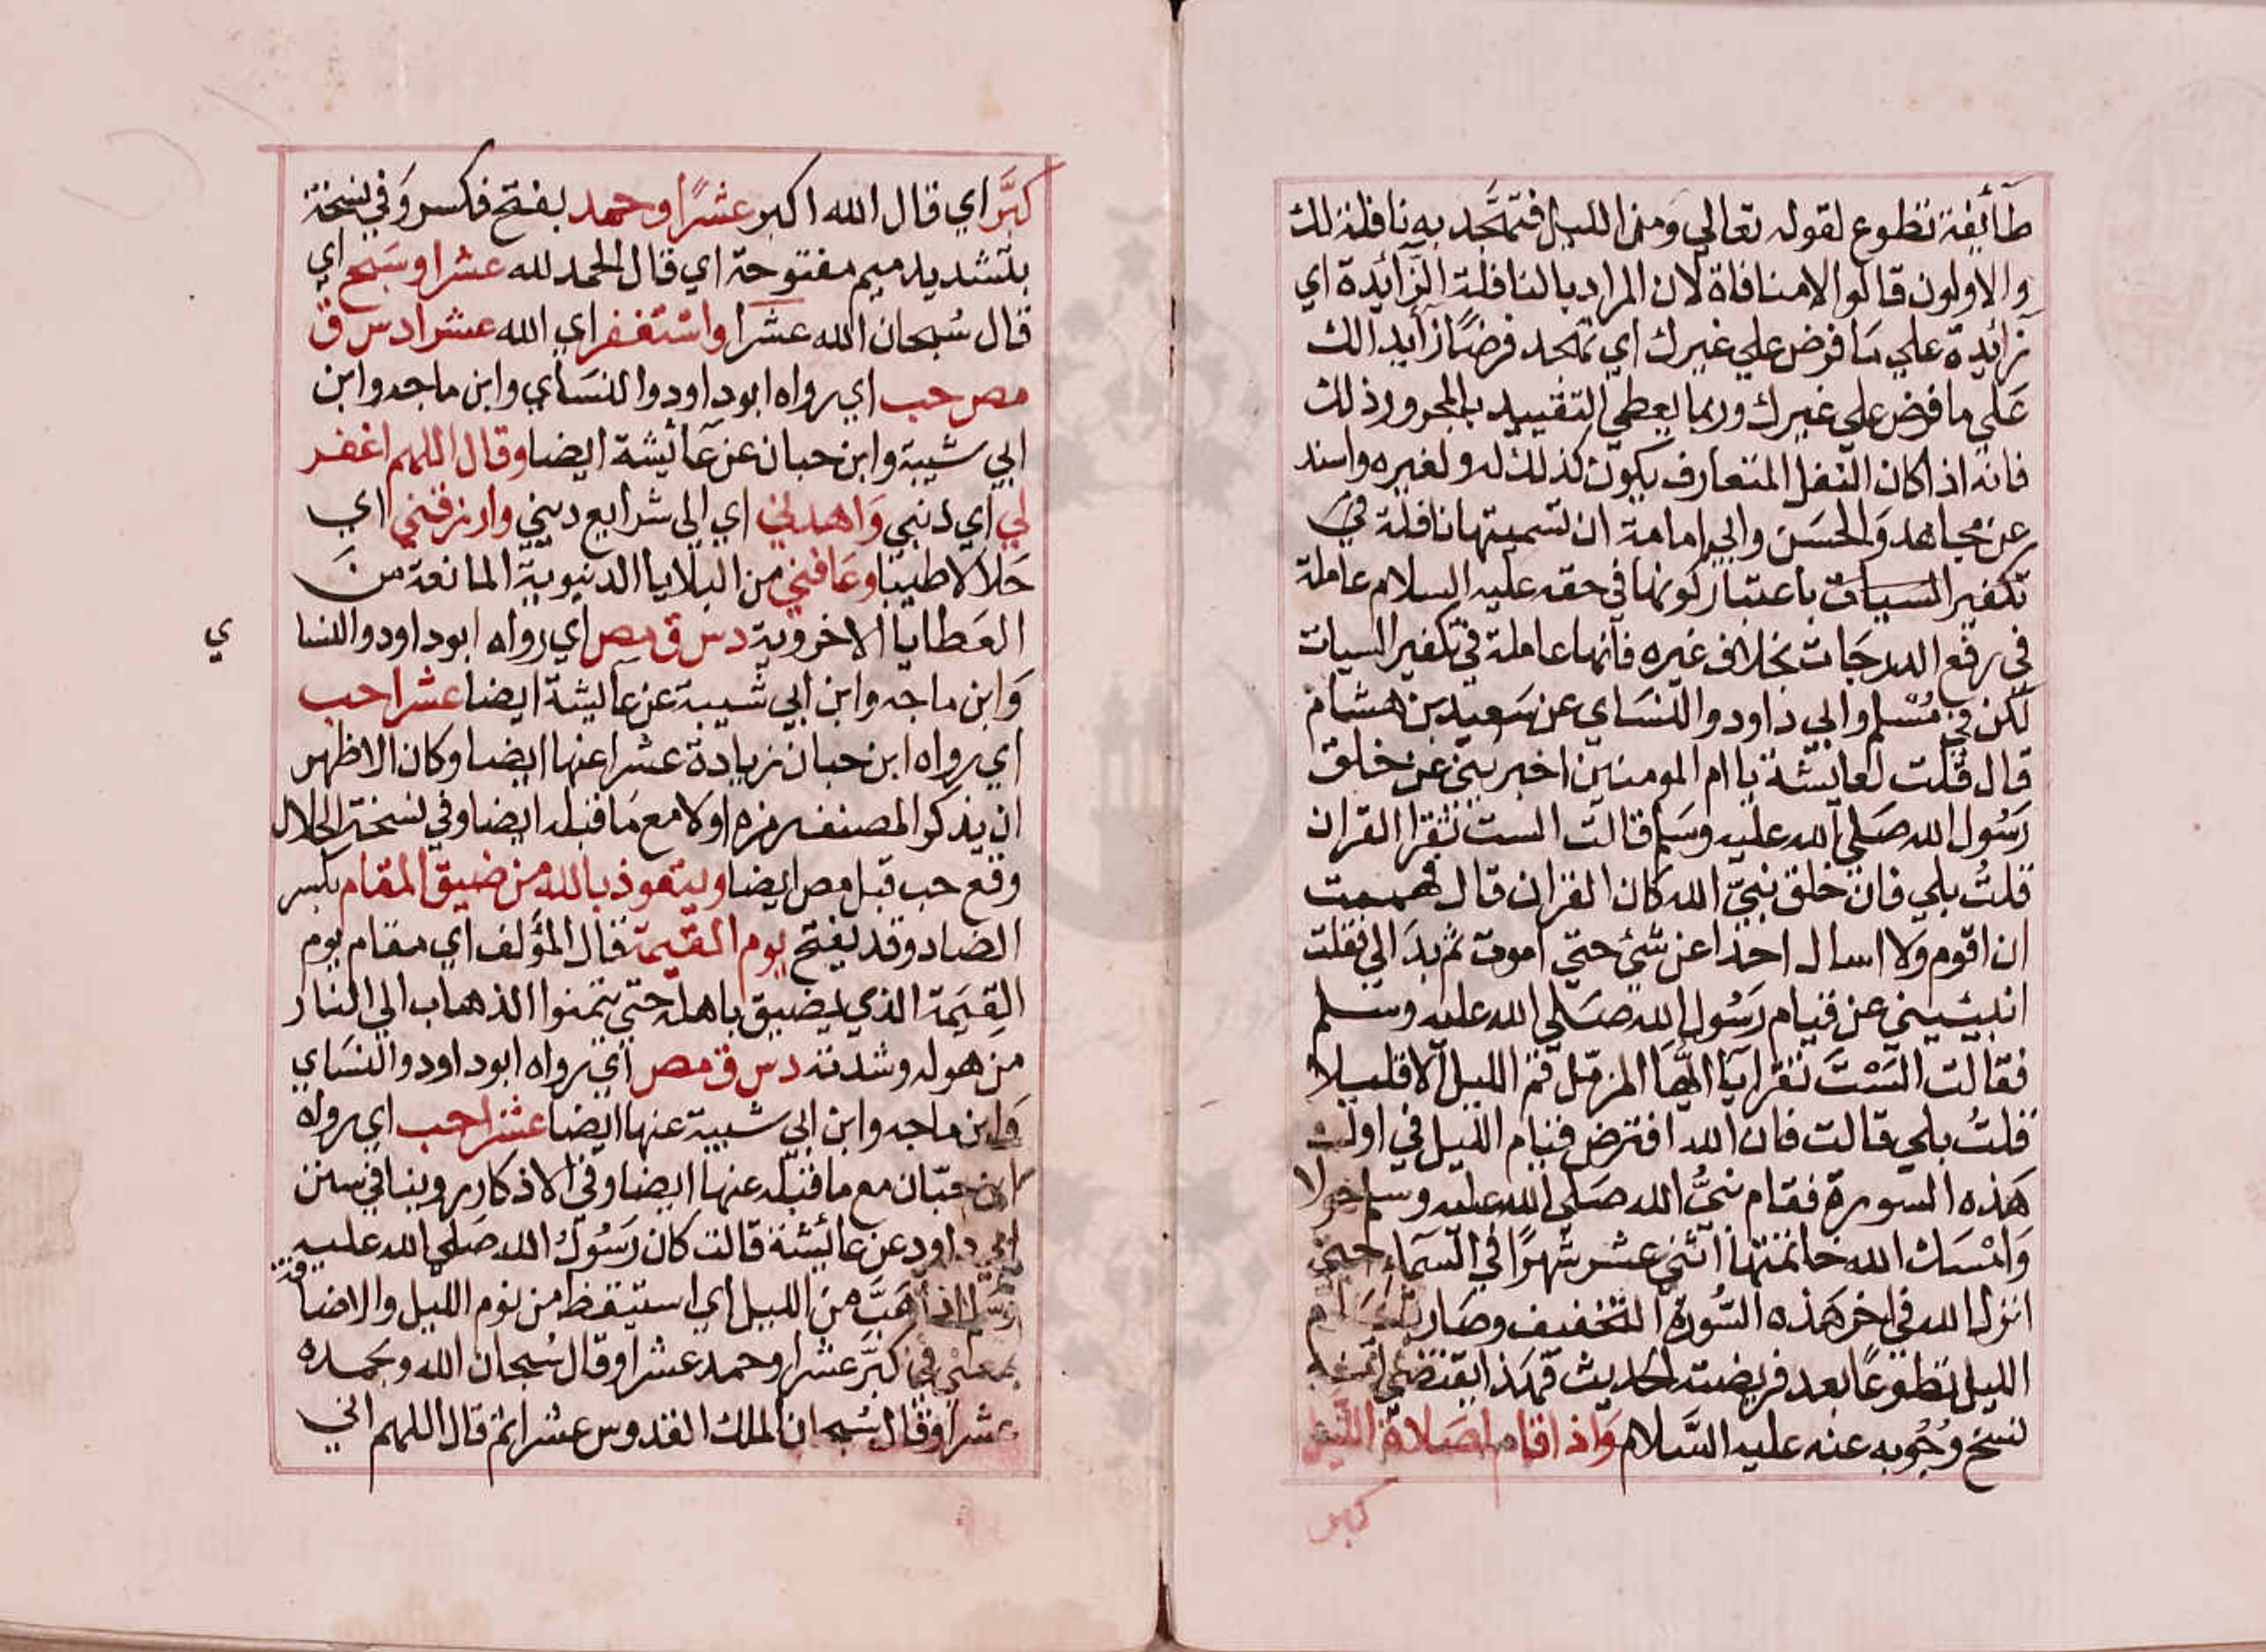 طائفة تطوع لقوله تعالي ومن الليل فتهجد به نافلة لك
والاولون قالوا لامنافاة لان المراد بالنافلة الزائدة اي
زائدة علي ما فرض علي غيرك اي تهجد فرضا زايدا لك
علي ما فرض علي غيرك وربما يعطي التقييد بالمجرور ذلك
فانه اذا كان النفل المتعارف يكون كذلك له ولغيره واسند
عن مجاهد والحسن وابي امامة ان تسميتها نافلة في
تكفير السيات باعتبار كونها في حقه عليه السلام عاملة
في رفع الدرجات بخلاف غيره فانها عاملة في تكفير السيات
لكن في مسلم وابي داود والنساي عن سعيد بن هشام
قال قلت لعايشة يا ام المومنين اخبريني عن خلق
رسول الله صلي الله عليه وسلم قالت الست تقرا القران
قلت بلي فان خلق نبي الله كان القران قال فهممت
ان اقوم ولا اسال احدا عن شئ حتي اموت ثم بدا لي فقلت
انبئيني عن قيام رسول الله صلي الله عليه وسلم
فقالت الست تقرا يا ايها المزمل قم الليل الا قليلا
قلت بلي قالت فان الله افترض قيام الليل في اول
هذه السورة فقام نبي الله صلي الله عليه وسلم حولا
وامسك الله خاتمتها اثني عشر شهرا في السماء حتي
انزل الله في اخر هذه السورة التخفيف وصار قيام
الليل تطوعا بعد فريضته الحديث فهذا يقتضي انه
نسخ وجوبه عنه عليه السلام واذا قام لصلاة الليل
كبر
كبر اي قال الله اكبر عشرا وحمد بفتح فكسر وفي نسخة
بتشديد ميم مفتوحة اي قال الحمد لله عشرا وسبح اي
قال سبحان الله عشرا واستغفر اي الله عشرا د س ق
مص حب اي رواه ابو داود والنساي وابن ماجه وابن
ابي شيبة وابن حبان عن عائيشة ايضا وقال اللهم اغفر
لي اي ذنبي واهدني اي الي شرايع ديني وارزقني اي
حلالا طيبا وعافني من البلايا الدنيوية المانعة من
العطايا الاخروية د س ق مص اي رواه ابو داود والنسا
ي
وابن ماجه وابن ابي شيبة عن عايشة ايضا عشرا حب
اي رواه ابن حبان زيادة عشرا عنها ايضا وكان الاظهر
ان يذكر المصنف رمزه اولا مع ما قبله ايضا وفي نسخة الجلال
وقع حب قبل مص ايضا ويتعوذ بالله من ضيق المقام بكسر
الضاد وقد يفتح يوم القيمة قال المؤلف اي مقام يوم
القيمة الذي يضيق باهله حتي يتمنوا الذهاب الي النار
من هوله وشدته د س ق مص اي رواه ابو داود والنساي
وابن ماجه وابن ابي شيبة عنها ايضا عشرا حب اي رواه
ابن حبان مع ما قبله عنها ايضا وفي الاذكار روينا في سنن
ابي داود عن عائشة قالت كان رسول الله صلي الله عليه
وسلم اذا هب من الليل اي استيقظ من نوم الليل والاضافة
بمعني في كبر عشرا وحمد عشرا وقال سبحان الله وبحمده
عشرا وقال سبحان الملك القدوس عشرا ثم قال اللهم اني